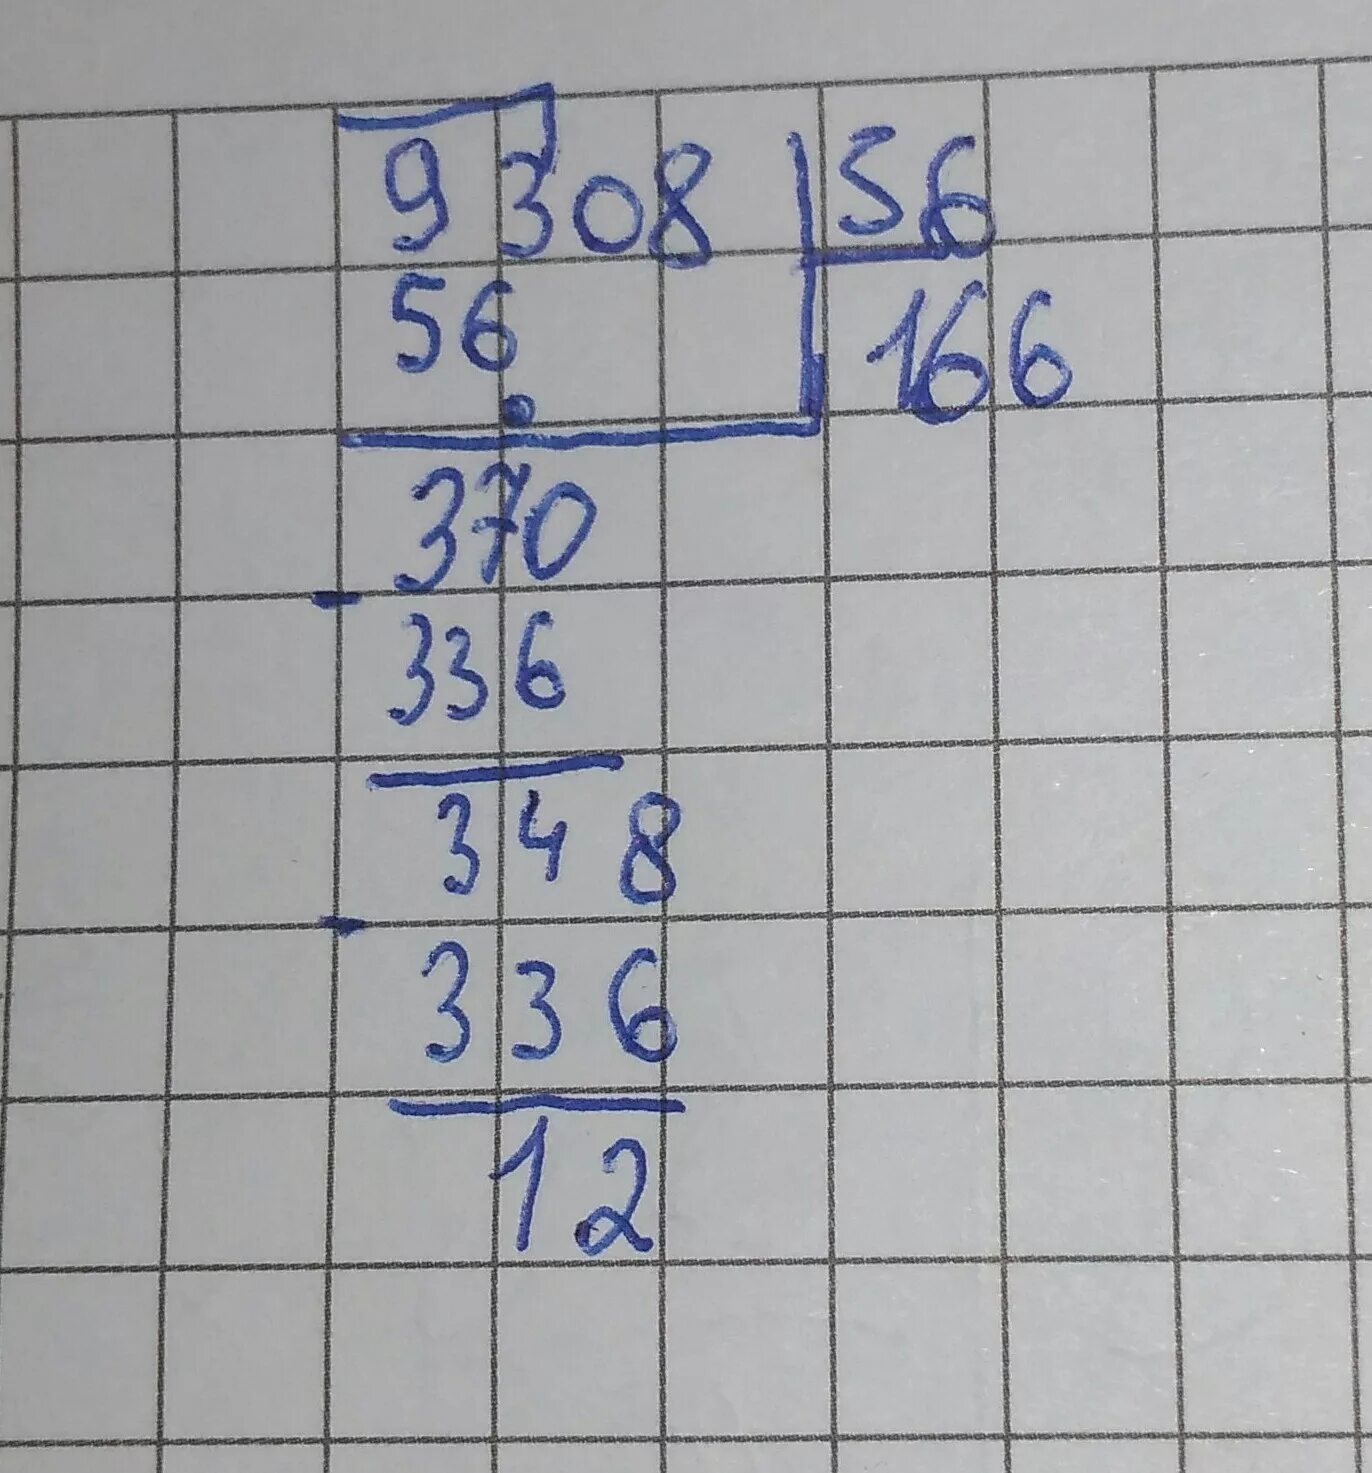 9308 56
56 166
370
- 336
348
- 336
12